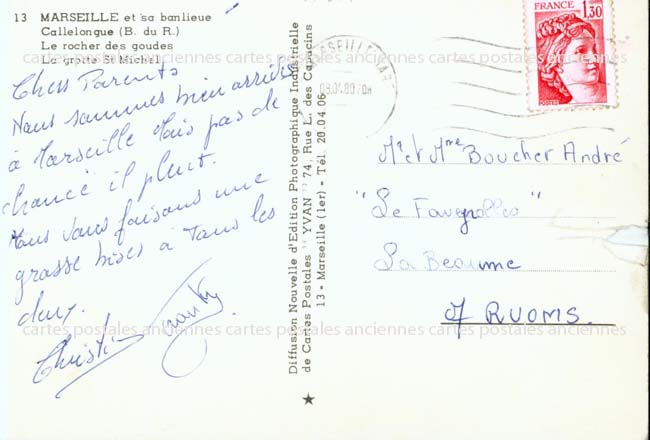 13 MARSEILLE et sa banlieue
Callelongue (B. du R.)
Le rocher des goudes
La grotte St Michel
cartes postales anciennes cartes postales anciennes cartes postales anciennes
Chers Parents
Nous sommes bien arrivés
à Marseille Mais pas de
chance il pleut.
Nous vous faisons une
grosse bises à tous les
deux.
Christi
Diffusion Nouvelle d'Edition Photographique Industrielle
de Cartes Postales "YVAN" 74, Rue L. des Capucins
13 - Marseille (1er) - Tél 20.04.06
FRANCE
1,30
POSTES
Mr et Mme Boucher André
"Le
La Beaume
07 RUOMS.
cartes postales anciennes cartes postales anciennes cartes postales anciennes